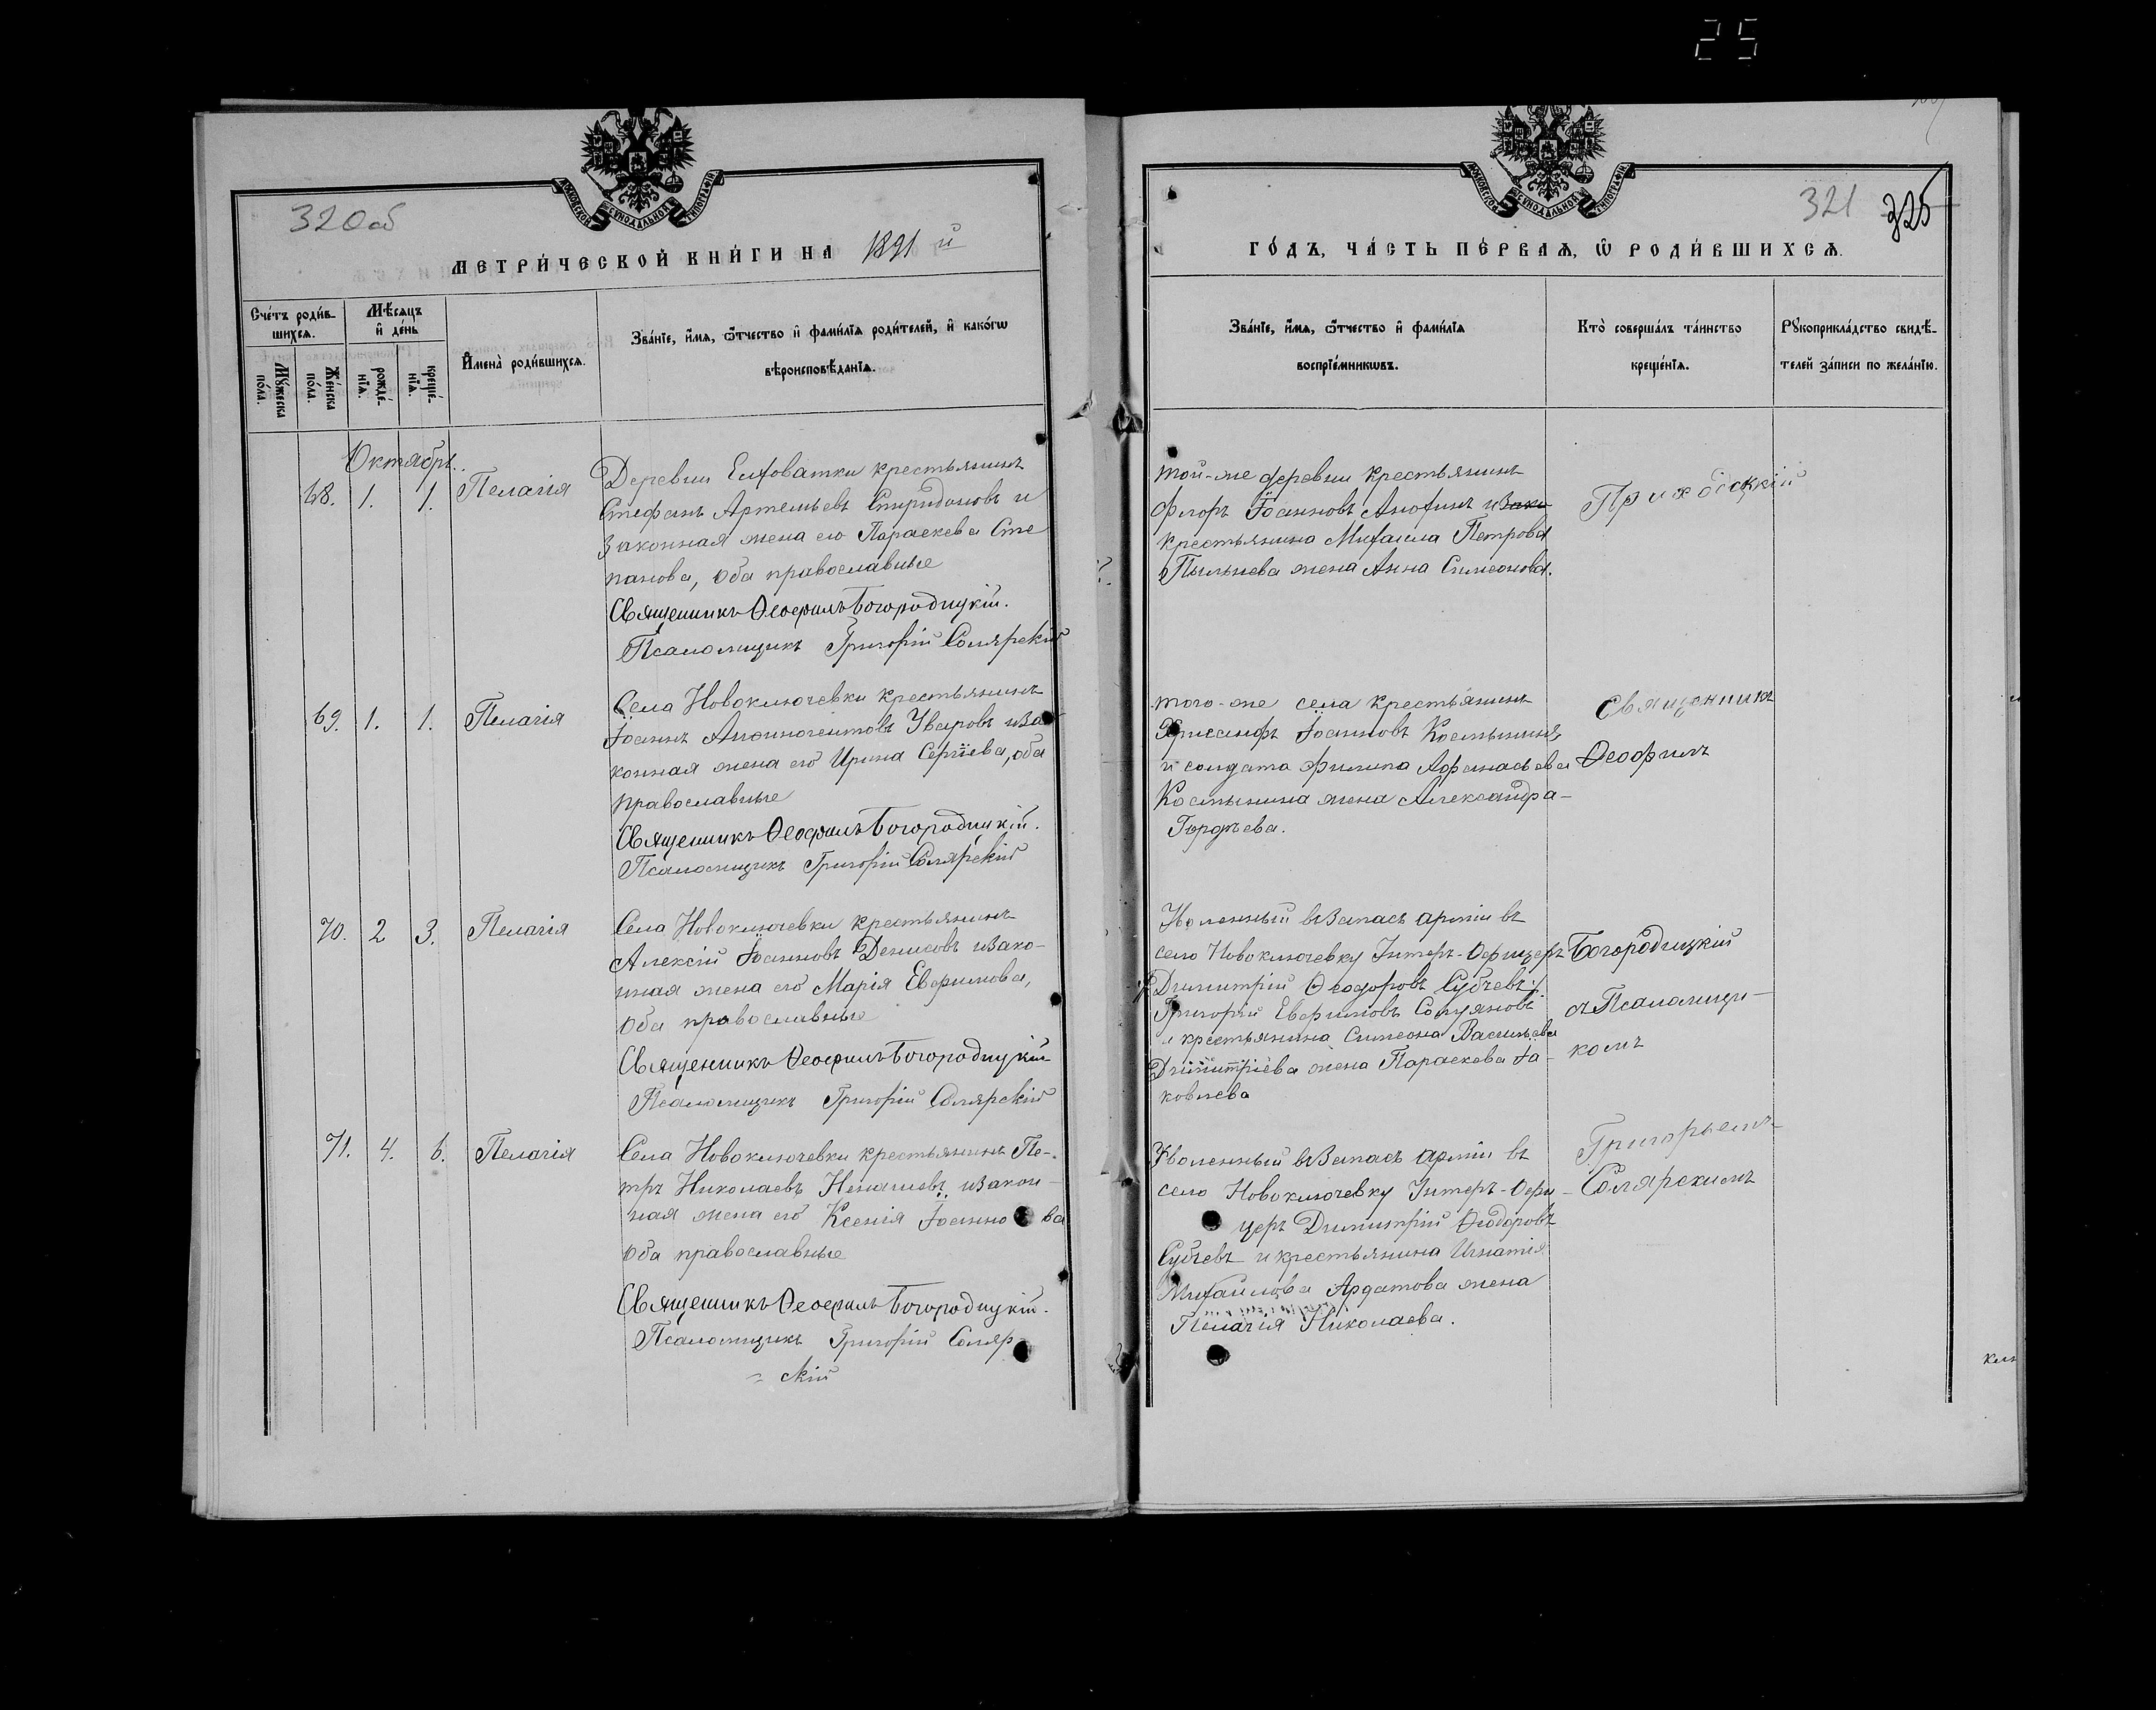 25
320 об
321 325
МОСКОВСКОЙ СѴНОДАЛЬНОЙ ТИПОГРАФІИ
МЕТРИ́ЧЕСКОЙ КНИ́ГИ НА 1891 й
Сче́тъ роди́в-
шихсѧ.
Мѣ́сѧцъ
и҆ де́нь
Мꙋ́жеска
по́ла.
Же́нска
по́ла.
рожде́-
нїѧ.
креще́-
нїѧ.
И҆мена̀ роди́вшихсѧ.
Зва́нїе, и҆́мѧ, ѻ҆́тчество и҆ фами́лїѧ роди́телей, и҆ како́гѡ
вѣроисповѣ́данїѧ.
Октябрь.
68. 1. 1. Пелагія
Деревни Елховатки крестьянинъ
Стефанъ Артемьевъ Спиридоновъ и
законная жена его Параскева Сте
панова, оба православные
Священникъ Ѳеофилъ Богородицкій.
Псаломщикъ Григорій Солярскій
69. 1. 1. Пелагія
Села Новоключевки крестьянинъ
Іоаннъ Уваровъ и за
конная жена его Ирина Сергіева, оба
православные
Священникъ Ѳеофилъ Богородицкій.
Псаломщикъ Григорій Солярскій
70. 2 3. Пелагія
Села Новоключевки крестьянинъ
Алексій Іоанновъ Денисовъ и зако-
нная жена его Марія Евфимова,
оба православные
Священникъ Ѳеофилъ Богородицкій
Псаломщикъ Григорій Солярскій
71. 4. 6. Пелагія
Села Новоключевки крестьянинъ Пе-
тръ Николаевъ Ненашевъ и закон-
ная жена его Ксенія Іоаннова
оба православные
Священникъ Ѳеофилъ Богородицкій.
Псаломщикъ Григорій Соляр
скій
МОСКОВСКОЙ СѴНОДАЛЬНОЙ ТИПОГРАФІИ
ГО́ДЪ, ЧА́СТЬ ПЕ́РВАѦ, Ѡ҆ РОДИ́ВШИХСѦ.
Зва́нїе, и҆́мѧ, ѻ҆́тчество и҆ фами́лїѧ
воспрїе́мникѡвъ.
Кто̀ соверша́лъ та́инство
креще́нїѧ.
Рꙋкоприкла́дство свидѣ́-
телей за́писи по жела́нїю.
той-же деревни крестьянинъ
Флоръ Іоанновъ Анохинъ и зако
крестьянина Михаила Петрова
Пыльнева жена Анна Симеонова.
того-же села крестьянинъ
Хрисанфъ Іоанновъ Костынинъ
и солдата Филипа Афанасьева
Костынина жена Александра
Гордѣева.
Уволенный въ запасъ арміи въ
село Новоключевку Унтеръ-Офицеръ
Димитрій Ѳеодоровъ Субчевъ
Григорій Евфимовъ
и крестьянина Симеона Васильева
Димитріева жена Параскева Іа-
ковлева
Уволенный въ запасъ арміи въ
село Новоключевку Унтеръ-Офи-
церъ Димитрій Ѳеодоровъ
Субчевъ и крестьянина Игнатія
Михаилова Ардатова жена
Пелагія Николаева.
Приходскій
Священникъ
Ѳеофилъ
Богородицкій
съ Псаломщи-
комъ
Григорьемъ
Солярскимъ